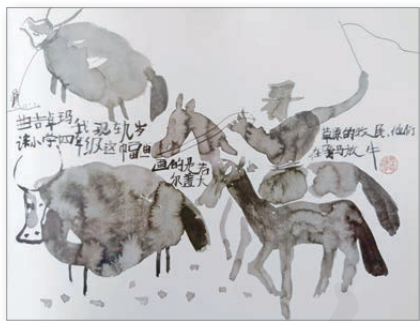 曲吉卓玛我现九岁
读小学四年级这幅画
画的是若
尔盖大
草原的牧民,他们
在骑马放牛